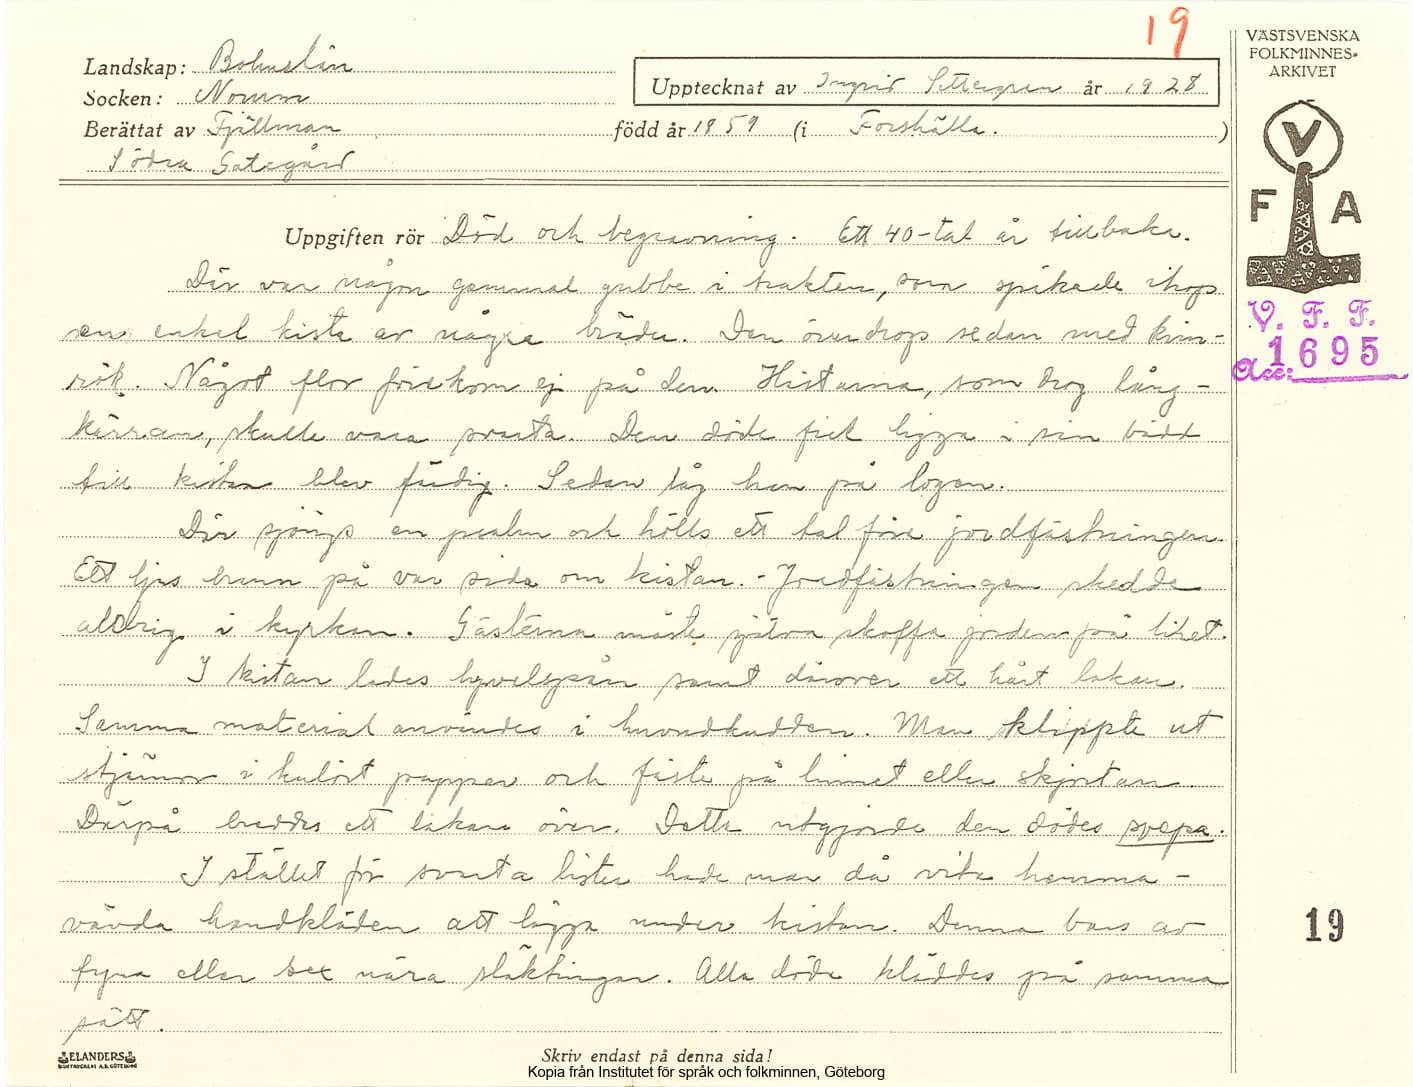 19
Landskap: Bohuslän
Socken: Norum
Upptecknat av Ingrid Settergren år 1928
Berättat av Fjällman född år 1859 (i Forshälla.)
Södra Gategård
VÄSTSVENSKA
FOLKMINNES-
ARKIVET
V
F A
V. F. F.
Acc: 1695
Uppgiften rör Död och begravning. Ett 40-tal år tillbaka.
Där var någon gammal gubbe i trakten, som spikade ihop
en enkel kista av några bräder. Den överdrogs sedan med kim-
rök. Något flor förekom ej på den. Hästarna, som drog lång-
kärran, skulle vara svarta. Den döde fick ligga i sin bädd
till kistan blev färdig. Sedan låg han på logen.
Där sjöngs en psalm och hölls ett tal före jordfästningen.
Ett ljus brann på var sida om kistan. - Jordfästningen skedde
aldrig i kyrkan. Gästerna måste själva skaffa jorden på liket.
I kistan lades hyvelspån samt därover ett hårt lakan.
Samma material användes i huvudkudden. Man klippte ut
stjärnor i kulört papper och fäste på linnet eller skjortan.
Därpå breddes ett lakan över. Detta utgjorde den dödes svepa.
I stället för svarta lister hade man då vita hemma-
vävda handkläden att lägga under kistan. Denna bars av
fyra eller sex nära släktingar. Alla döda kläddes på samma
sätt.
19
ELANDERS
BOKTRYCKERI A.B. GÖTEBORG
Skriv endast på denna sida!
Kopia från Institutet för språk och folkminnen, Göteborg